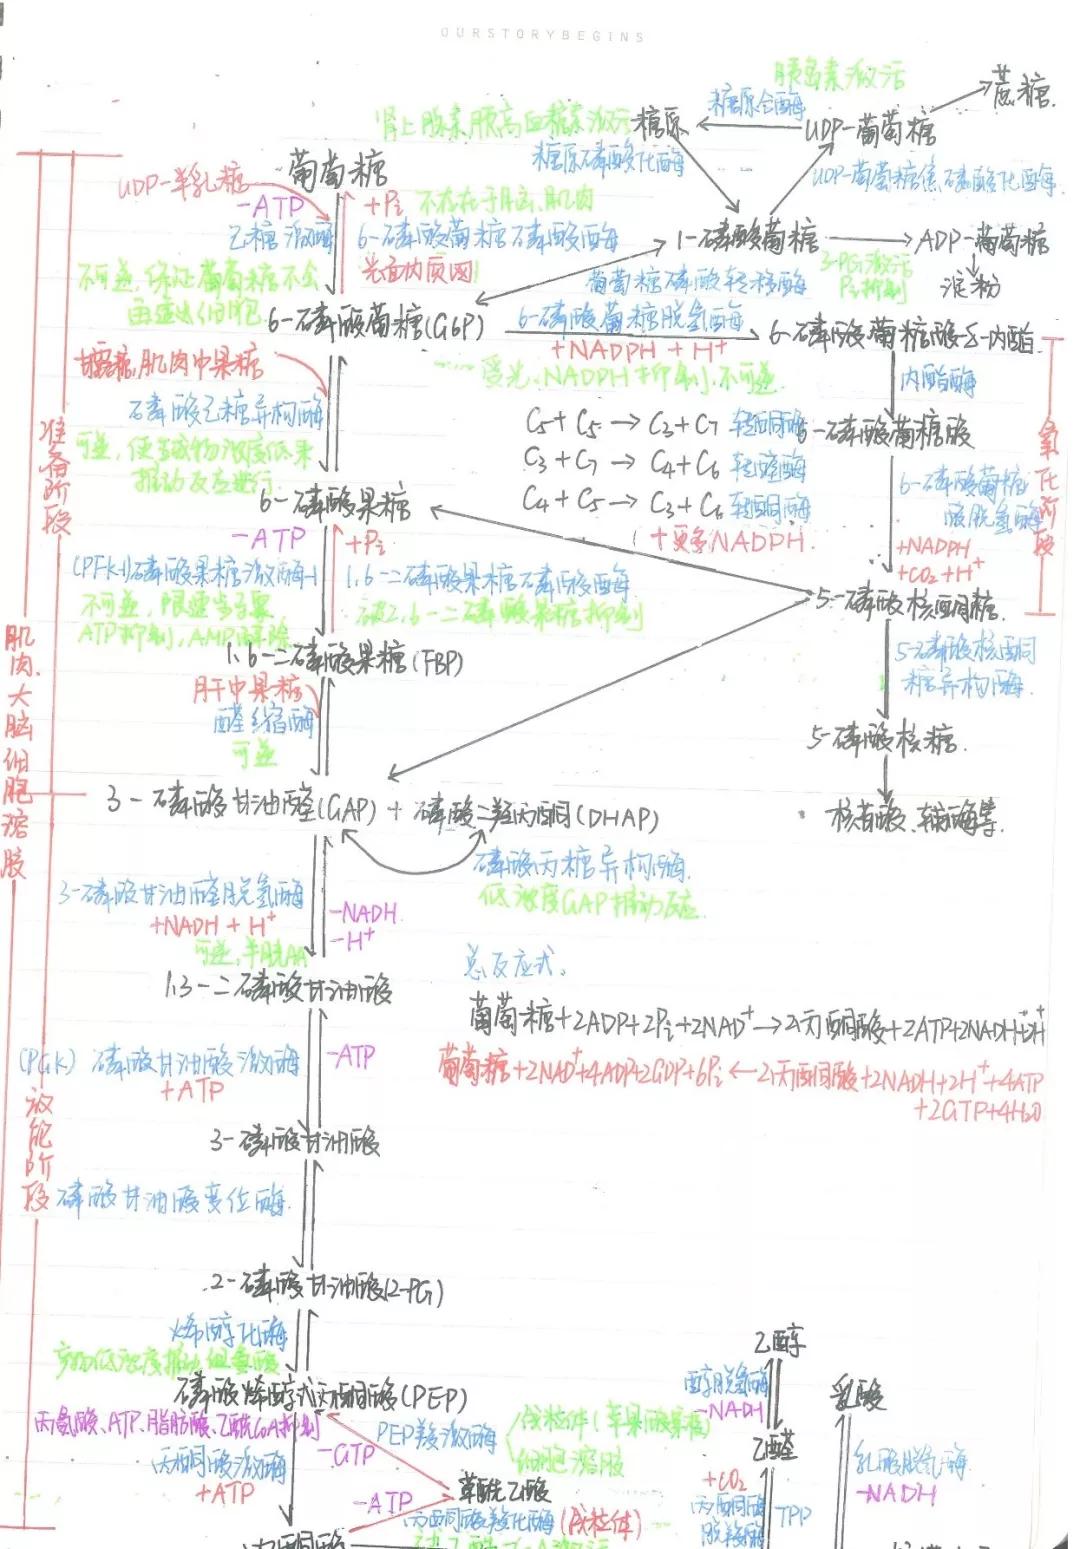 OURSTORYBEGINS
胰岛素激活
蔗糖
糖原合酶
肾上腺素胰高血糖素激活
糖原
UDP-葡萄糖
糖原磷酸化酶
UDP-葡萄糖焦磷酸化酶
葡萄糖
UDP-半乳糖
-ATP
+Pi
不存在于脑、肌肉
己糖激酶
6-磷酸葡萄糖磷酸酶
光面内质网
1-磷酸葡萄糖
ADP-葡萄糖
3-PG激活
Pi抑制
淀粉
不可逆,保证葡萄糖不会
再逸出细胞
葡萄糖磷酸转移酶
6-磷酸葡萄糖(G6P)
6-磷酸葡萄糖脱氢酶
+NADPH + H+
6-磷酸葡萄糖酸-δ-内酯
受光、NADPH抑制,不可逆
甘露糖,肌肉中果糖
磷酸己糖异构酶
可逆,
推动反应进行
内酯酶
C5+C5→C3+C7 转酮酶
6-磷酸葡萄糖酸
C3+C7→C4+C6 转醛酶
C4+C5→C3+C6 转酮酶
+更多NADPH.
6-磷酸葡萄糖
酸脱氢酶
+NADPH
+CO2+H+
氧化阶段
准备阶段
6-磷酸果糖
-ATP
+Pi
(PFK-1)磷酸果糖激酶-1
1,6-二磷酸果糖磷酸酶
不可逆,限速步骤
ATP抑制,AMP解除
被2,6-二磷酸果糖抑制
5-磷酸核酮糖.
1,6-二磷酸果糖(FBP)
5-磷酸核酮
糖异构酶
肝中果糖
醛缩酶
可逆
5-磷酸核糖.
肌肉、大脑细胞溶胶
3-磷酸甘油醛(GAP)+磷酸二羟丙酮(DHAP)
核苷酸、辅酶等.
磷酸丙糖异构酶.
低浓度GAP推动反应
3-磷酸甘油醛脱氢酶
+NADH + H+
-NADH.
-H+
可逆,半胱AA
1,3-二磷酸甘油酸
总反应式.
葡萄糖+2ADP+2Pi+2NAD+→2丙酮酸+2ATP+2NADH+2H+
葡萄糖+2NAD++4ADP+2GDP+6Pi←2丙酮酸+2NADH+2H++4ATP
+2GTP+4H2O
(PGK) 磷酸甘油酸激酶
+ATP
-ATP
放能阶段
3-磷酸甘油酸
磷酸甘油酸变位酶.
2-磷酸甘油酸(2-PG)
烯醇化酶
磷酸烯醇式丙酮酸(PEP)
丙氨酸、ATP、脂肪酸、乙酰CoA抑制
丙酮酸激酶
+ATP
-GTP
PEP羧激酶
线粒体(苹果酸穿梭)
细胞溶胶
草酰乙酸
-ATP
丙酮酸羧化酶(线粒体)
丙酮酸
乙醇
醇脱氢酶
-NADH
乙醛
+CO2
丙酮酸
脱羧酶
TPP
乳酸
乳酸脱氢酶
-NADH